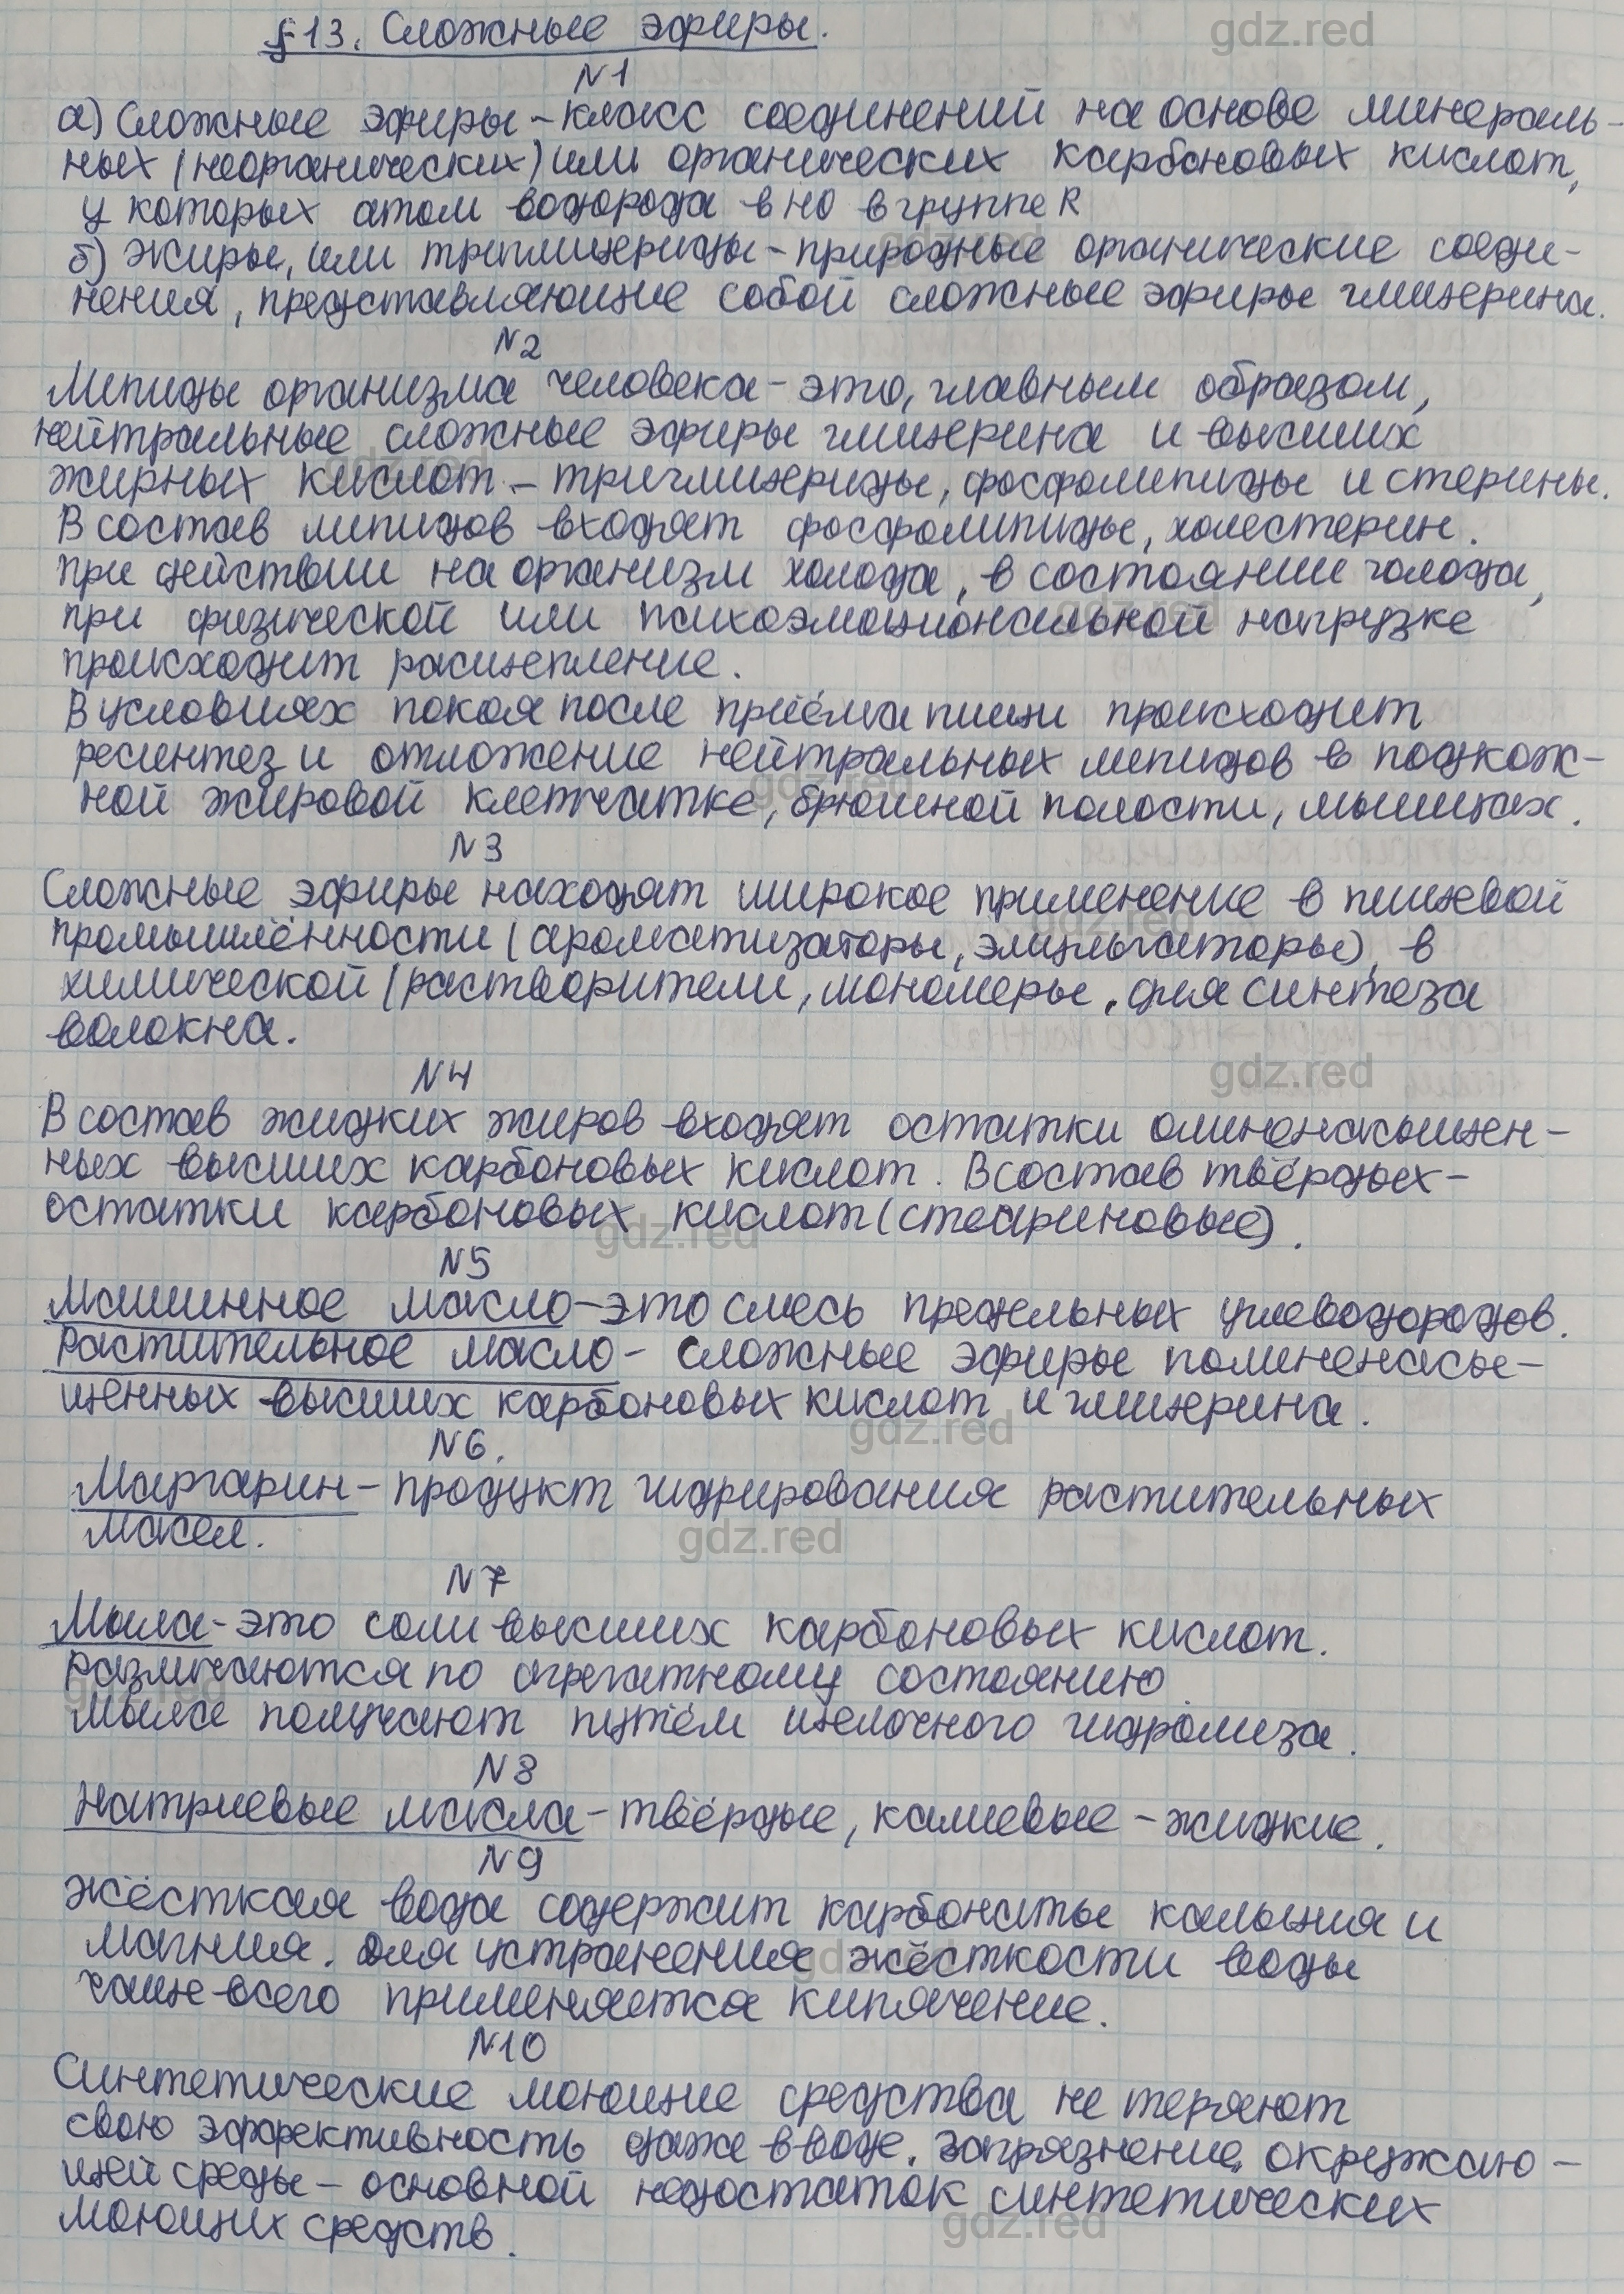 §13. Сложные эфиры.
gdz.red
№1
а) Сложные эфиры – класс соединений на основе минераль-
ных (неорганических) или органических карбоновых кислот,
у которых атом водорода в HO в группе R
б) Жиры, или триглицериды – природные органические соеди-
нения, представляющие собой сложные эфиры глицерина.
№2
Липиды организма человека – это, главным образом,
нейтральные сложные эфиры глицерина и высших
жирных кислот – триглицериды, фосфолипиды и стерины.
В состав липидов входят фосфолипиды, холестерин.
при действии на организм холода, в состоянии голода,
при физической или психоэмоциональной нагрузке
происходит расщепление.
В условиях покоя после приёма пищи происходит
ресинтез и отложение нейтральных липидов в подкож-
ной жировой клетчатке, брюшной полости, мышцах.
№3
Сложные эфиры находят широкое применение в пищевой
промышлённости (ароматизаторы, эмульгаторы), в
химической (растворители, мономеры, для синтеза
волокна.
№4
gdz.red
В состав жидких жиров входят остатки олиненасыщен-
ных высших карбоновых кислот. В состав твёрдых-
остатки карбоновых кислот (стеариновые).
gdz.red
№5
Машинное масло – это смесь предельных углеводородов.
Растительное масло – сложные эфиры полиненасы-
щенных высших карбоновых кислот и глицерина.
gdz.red
№6.
Маргарин – продукт гидрирования растительных
масел.
gdz.red
№7
Мыла – это соли высших карбоновых кислот.
Различаются по агрегатному состоянию.
мыла получают путём щелочного гидролиза.
№8
Натриевые масла – твёрдые, калиевые – жидкие.
№9
Жёсткая вода содержит карбонаты кальция и
магния. Для устранения жёсткости воды
чаще всего применяется кипячение.
№10
Синтетические моющие средства не теряют
свою эффективность даже в воде. Загрязнение окружаю-
щей среды – основной недостаток синтетических
моющих средств.
gdz.red